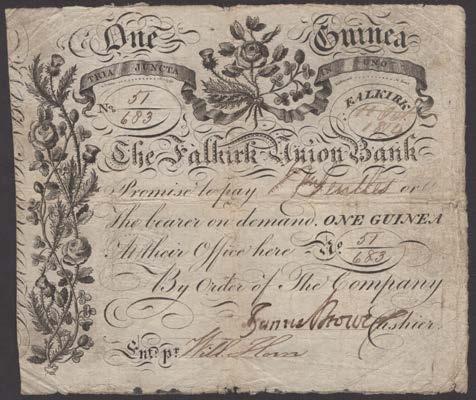 One Guinea
TRIA JUNCTA IN UNO
No 51/683 FALKIRK
The Falkirk Union Bank
Promise to pay or
The bearer on demand, ONE GUINEA
At their Office here No. 51/683
By Order of The Company
Cashier.
Entd. pr. Will